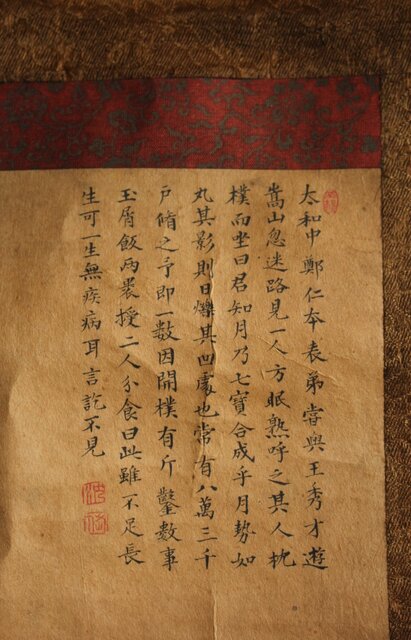 太和中鄭仁本表弟嘗與王秀才遊
嵩山忽迷路見一人方眠熟呼之其人枕
樸而坐曰君知月乃七寶合成乎月勢如
丸其影則日爍其凹處也常有八萬三千
戶脩之予即一數因開樸有斤鑿數事
玉屑飯兩裹授二人分食曰此雖不足長
生可一生無疾病耳言訖不見